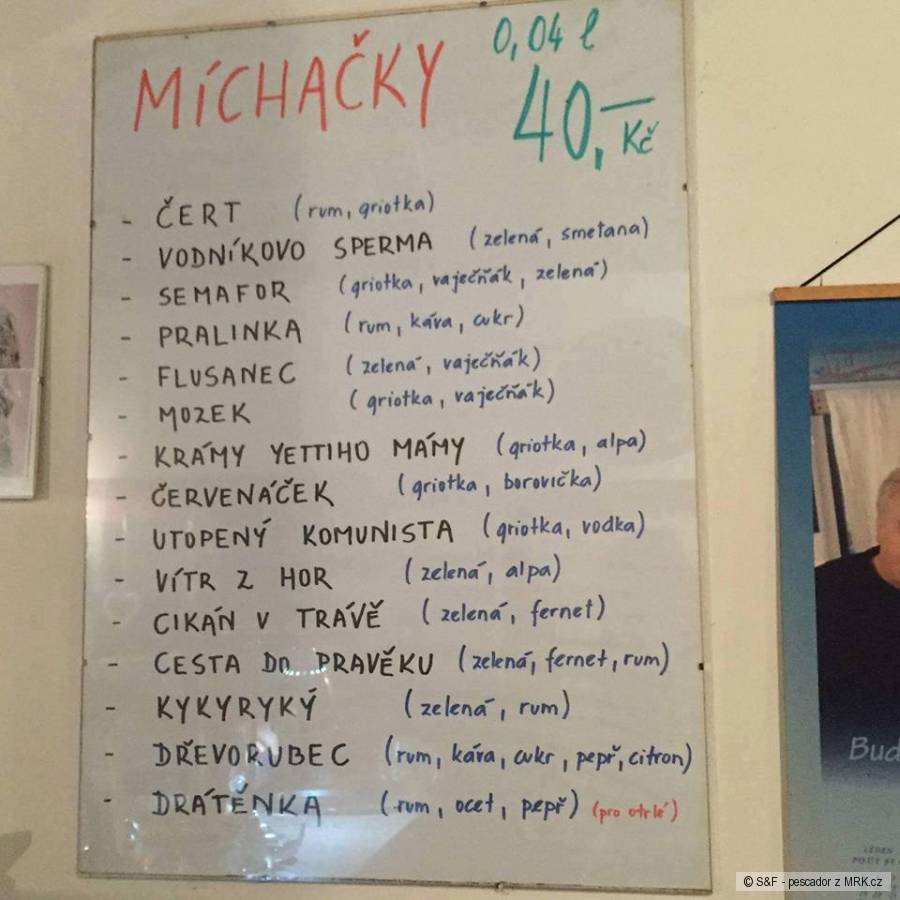 MÍCHAČKY
0,04 l
40,– Kč
- ČERT (rum, griotka)
- VODNÍKOVO SPERMA (zelená, smetana)
- SEMAFOR (griotka, vaječňák, zelená)
- PRALINKA (rum, káva, cukr)
- FLUSANEC (zelená, vaječňák)
- MOZEK (griotka, vaječňák)
- KRÁMY YETTIHO MÁMY (griotka, alpa)
- ČERVENÁČEK (griotka, borovička)
- UTOPENÝ KOMUNISTA (griotka, vodka)
- VÍTR Z HOR (zelená, alpa)
- CIKÁN V TRÁVĚ (zelená, fernet)
- CESTA DO PRAVĚKU (zelená, fernet, rum)
- KYKYRYKÝ (zelená, rum)
- DŘEVORUBEC (rum, káva, cukr, pepř, citron)
- DRÁTĚNKA (rum, ocet, pepř) (pro otrlé)
Bud
LEDEN
© S&F - pescador z MRK.cz